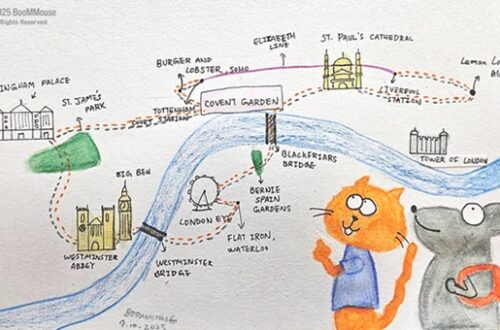 025 BooMMouse
Rights Reserved
ELIZABETH
LINE
ST. PAUL'S CATHEDRAL
BURGER AND
LOBSTER, SOHO
Lemon
INGHAM PALACE
ST. JAMES'S
PARK
TOTTENHAM
STATION
COVENT GARDEN
LIVERPOOL
STATION
BLACKFRIARS
BRIDGE
TOWER OF LONDON
BIG BEN
BERNIE
SPAIN
GARDENS
LONDON EYE
FLAT IRON,
WATERLOO
WESTMINSTER
ABBEY
WESTMINSTER
BRIDGE
BOOMMOUSE
9.10.2025